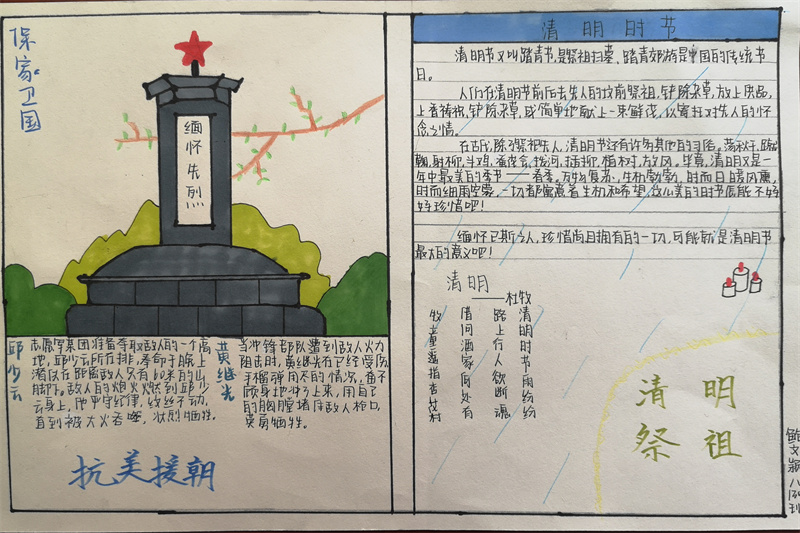 保家卫国
缅怀先烈
邱少云
志愿军集团准备夺取敌人的一个高
地，邱少云所在排，奉命于晚上
潜伏在距离敌人只有60米的山
脚下。敌人的炮火燃到邱少
云身上，他严守纪律，纹丝不动，
直到被大火吞噬，壮烈牺牲。
黄继光
当冲锋部队遭到敌人火力
阻击时，黄继光在已经受伤
手榴弹用尽的情况，奋不
顾身地冲了上来，用自己
的胸膛堵住敌人枪口，
英勇牺牲。
抗美援朝
清明时节
清明节又叫踏青节，是祭祖扫墓、踏青郊游是中国的传统节
日。
人们在清明节前后去先人的坟前祭祖，铲除杂草，放上供品，
上香祷祝，铲除杂草，或简单地献上一束鲜花，以寄托对先人的怀
念之情。
在古代，除了祭祀先人，清明节还有许多其他的习俗。荡秋千、蹴
鞠、射柳、斗鸡、蚕花会、拔河、插柳、植树、放风、毕竟，清明又是一
年中最美的季节——春季。万物复苏，生机勃勃，时而日暖风熏，
时而细雨空蒙，一切都寓意着生机和希望，这么美的时节怎能不好
好珍惜吧！
缅怀已斯之人，珍惜尚且拥有的一切，可能就是清明节
最大的意义吧！
清明
——杜牧
清明时节雨纷纷
路上行人欲断魂
借问酒家何处有
牧童遥指杏花村
清明
祭祖